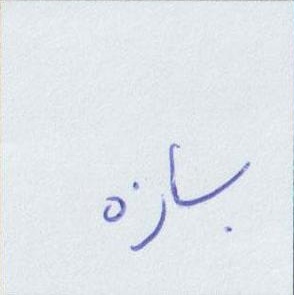 بسازه